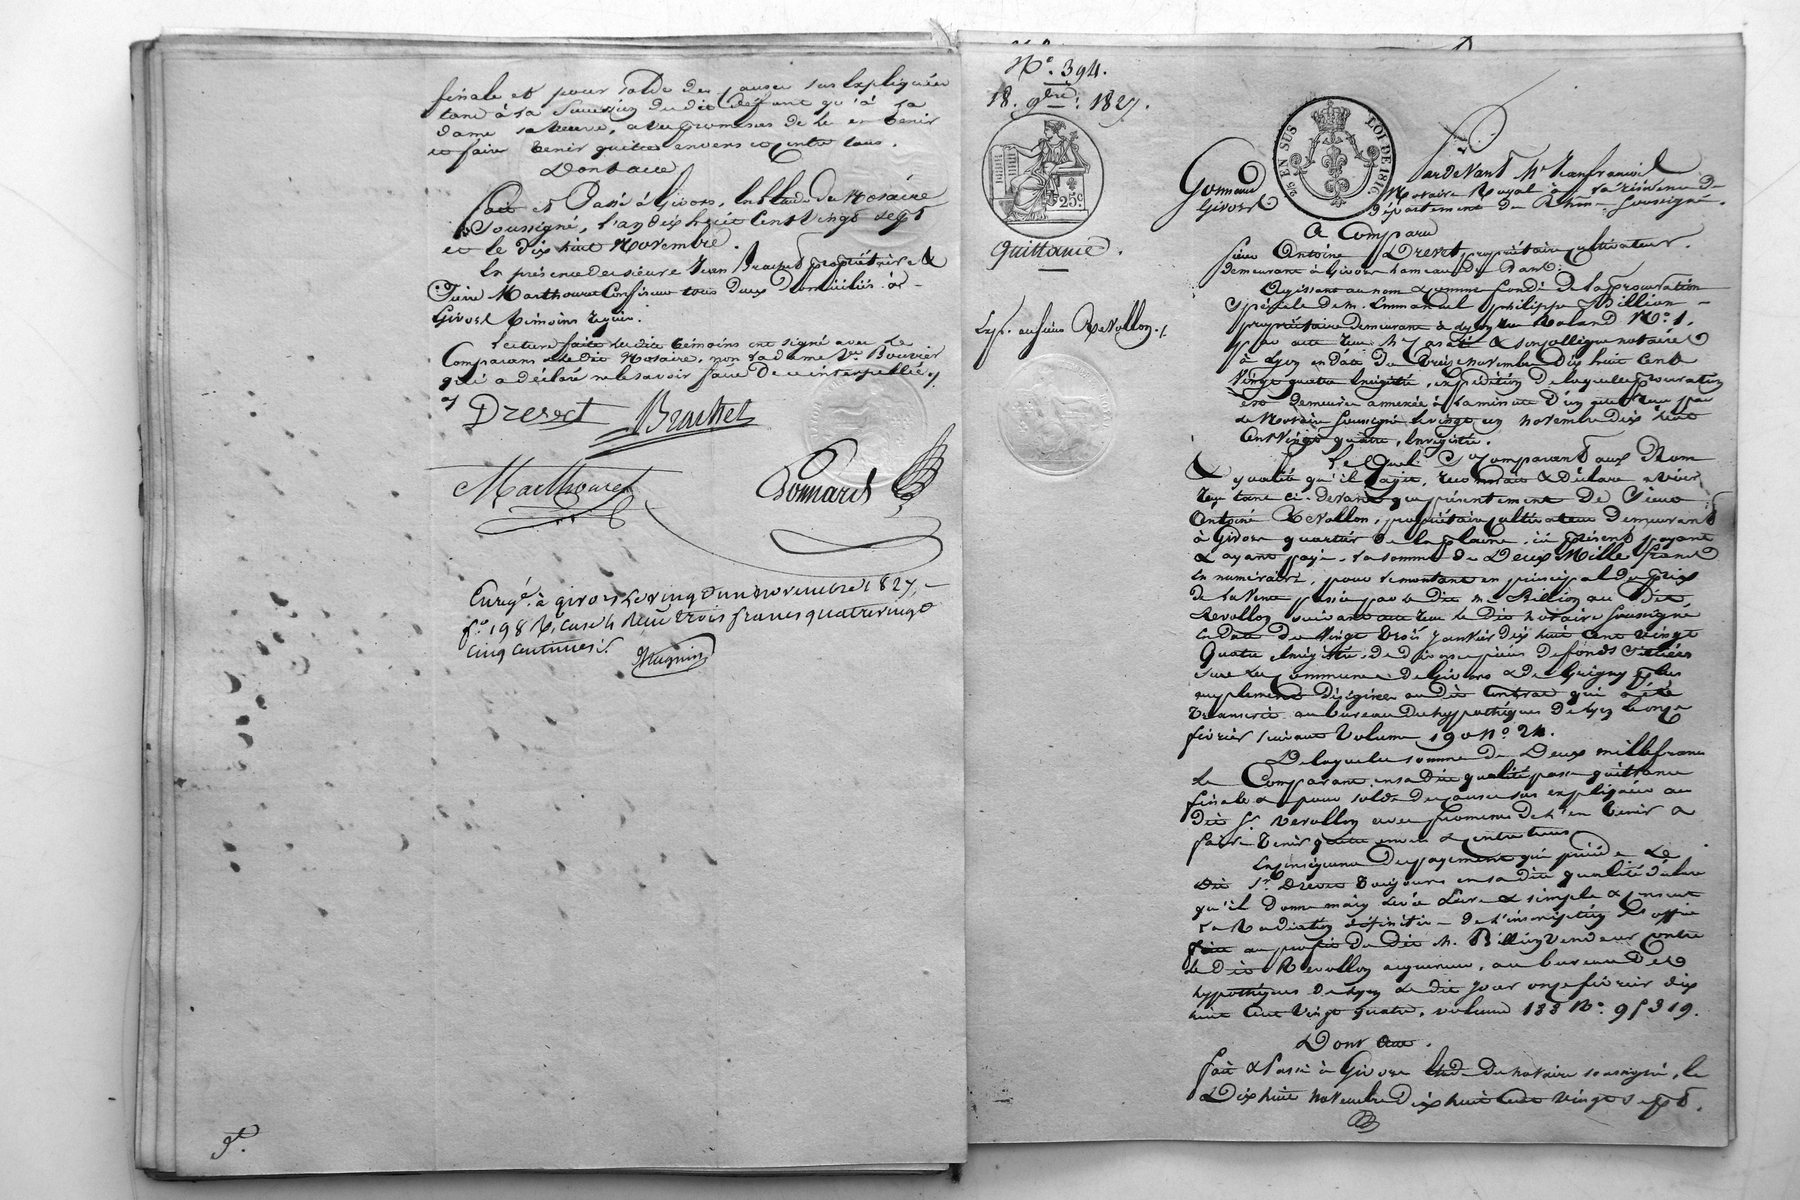 finale et pour solde des causes sus expliquées
tant à la succession du dit défunt qu'à la
dame sa veuve, avec promesse de les en tenir
et faire tenir quitte envers et contre tous.
Dont acte
Fait et Passé à Givors, Etude du Notaire
Soussigné, l'an dix huit Cent Vingt Sept
et le Dix huit Novembre.
En présence de sieurs Jean Brachet propriétaire &
Pierre Marthouret Confiseur tous deux Domiciliés à
Givors témoins requis.
Lecture faite les dits témoins ont signé avec le
Comparant & le dit Notaire, non la dame Ve Bouvier
qui a déclaré ne le savoir faire De ce interpellée
Drevet Brachet
Marthouret Gonnard
Enregé. à givors le vingt un novembre 1827,
fo. 198 Vo, case 4 Reçu trois francs quatre vingt
cinq centimes.
9t.
No. 394.
18. 9bre. 1827.
25c
Quittance.
Exp. au sieur Revollon.
25 EN SUS LOI DE 1816.
Gonnard
Givors
Pardevant Me Jean françois
Notaire Royal à la résidence de
département du Rhône Soussigné.
A Comparu
sieur Antoine Drevet propriétaire cultivateur.
demeurant à Givors hameau de Bans.
Agissant au nom & comme fondé de la procuration
Spéciale de m. Emmanuel philippe Billion
propriétaire demeurant à Lyon rue Roland No. 1,
par acte reçu Me & son collègue notaires
à Lyon en date du treize novembre dix huit Cent
Vingt quatre Enregistré, expédition de laquelle procuration
est demeurée annexée à la minute d'un acte reçu par
le Notaire Soussigné le vingt un novembre dix huit
Cent Vingt quatre, Enregistré.
Le Quel Sr. Comparant aux Nom
& qualité qu'il agit, reconnait & déclare avoir
reçu tant ci-devant que présentement De Sieur
Antoine Revollon, propriétaire cultivateur demeurant
à Givors quartier de la plaine, ici présent payant
& ayant payé, la somme de Deux Mille francs
en numéraire, pour le montant en principal du prix
de la Vente passée par le dit m. Billion au Dit
Revollon suivant acte reçu le dit notaire Soussigné
en Date du Vingt trois Janvier dix huit Cent vingt
Quatre Enregistré, de diverses pièces de fonds situées
sur les Communes de Givors & de Grigny & plus
amplement désignées au dit Contrat qui a été
transcrit au bureau des hypothèques de Lyon le onze
février suivant Volume 190 No. 24.
De laquelle somme de Deux mille francs
le Comparant en sa dite qualité passe quittance
finale & pour solde des causes sus expliquées au
dit Sr. Revollon avec promesse de l'en tenir &
faire tenir quitte envers & contre tous
En conséquence Du payement qui précède Le
Dit Sr. Drevet toujours en sa dite qualité déclare
qu'il donne main levée Pure & simple & consent
la Radiation définitive de l'inscription d'office
faite au profit du dit m. Billion vendeur contre
le dit Revollon acquéreur, au bureau Des
hypothèques De Lyon Le dit jour onze février dix
huit Cent Vingt quatre, volume 188 No. 95319.
Dont acte.
fait & Passé à Givors Etude du notaire soussigné, le
Dix huit novembre Dix huit Cent vingt sept.